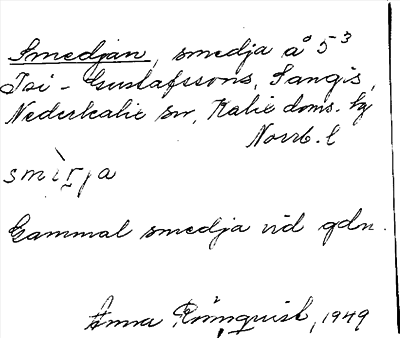 Smedjan, smedja å 5³
Isi-Gustafssons, Sangis,
Nederkalix sn, Kalix doms. hg
Norrb. l
smìrja
Gammal smedja vid gdn.
Anna Rönnqvist, 1949